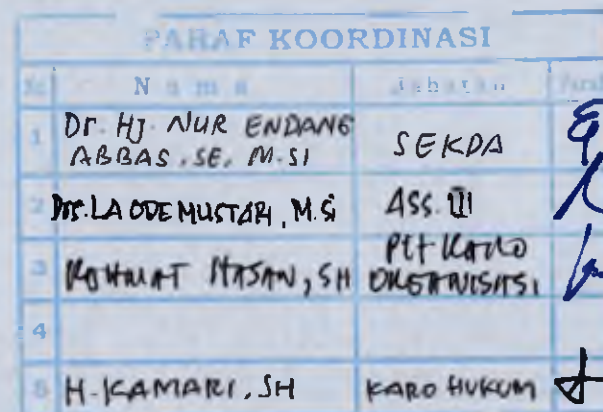 PARAF KOORDINASI
No Nama Jabatan Paraf
1 Dr. Hj. NUR ENDANG SEKDA
ABBAS, SE, M.SI
2 Drs. LA ODE MUSTARI, M.Si ASS. III
3 ROHMAT HASAN, SH Plt KARO
ORGANISASI
4
5 H. KAMARI, SH KARO HUKUM